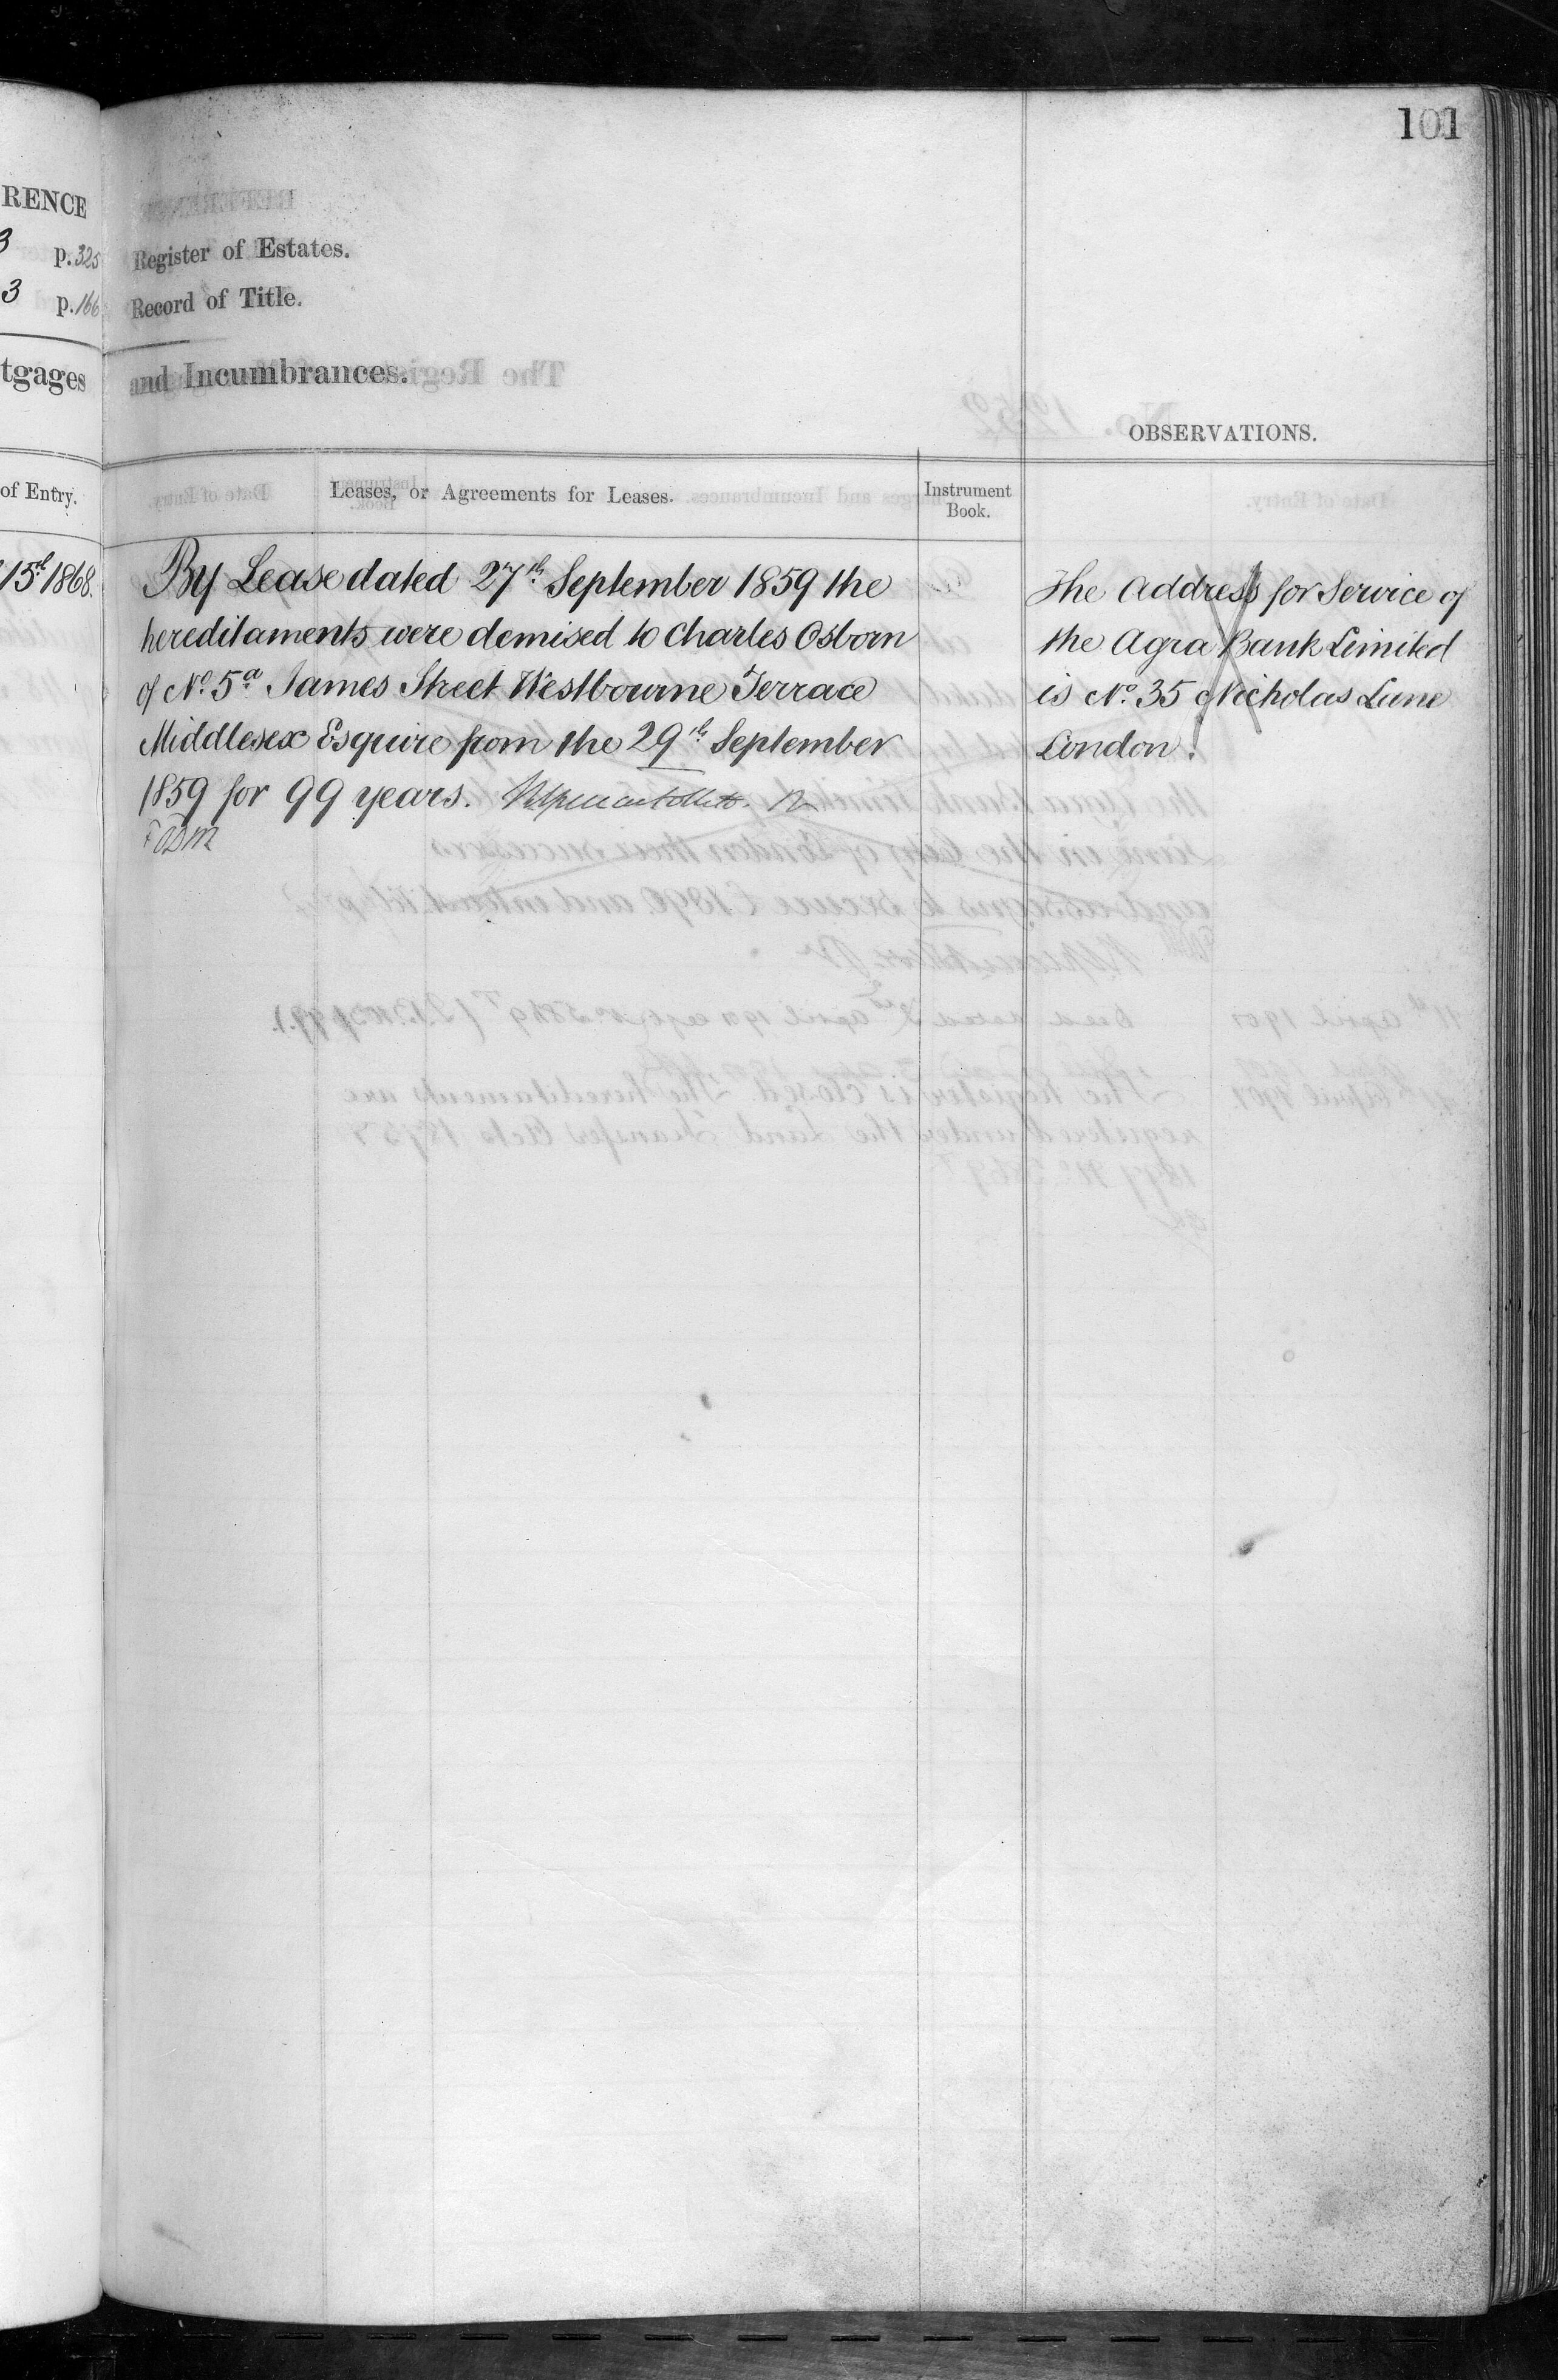 101
RENCE
3 p. 325 Register of Estates.
3 p. 166 Record of Title.
tgages and Incumbrances.
OBSERVATIONS.
of Entry. Leases, or Agreements for Leases. Instrument Book.
15th 1868.
By Lease dated 27th September 1859 the
hereditaments were demised to Charles Osborn
of No. 5a James Street Westbourne Terrace
Middlesex Esquire from the 29th September
1859 for 99 years.
The Address for Service of
the Agra Bank Limited
is No. 35 Nicholas Lane
London.